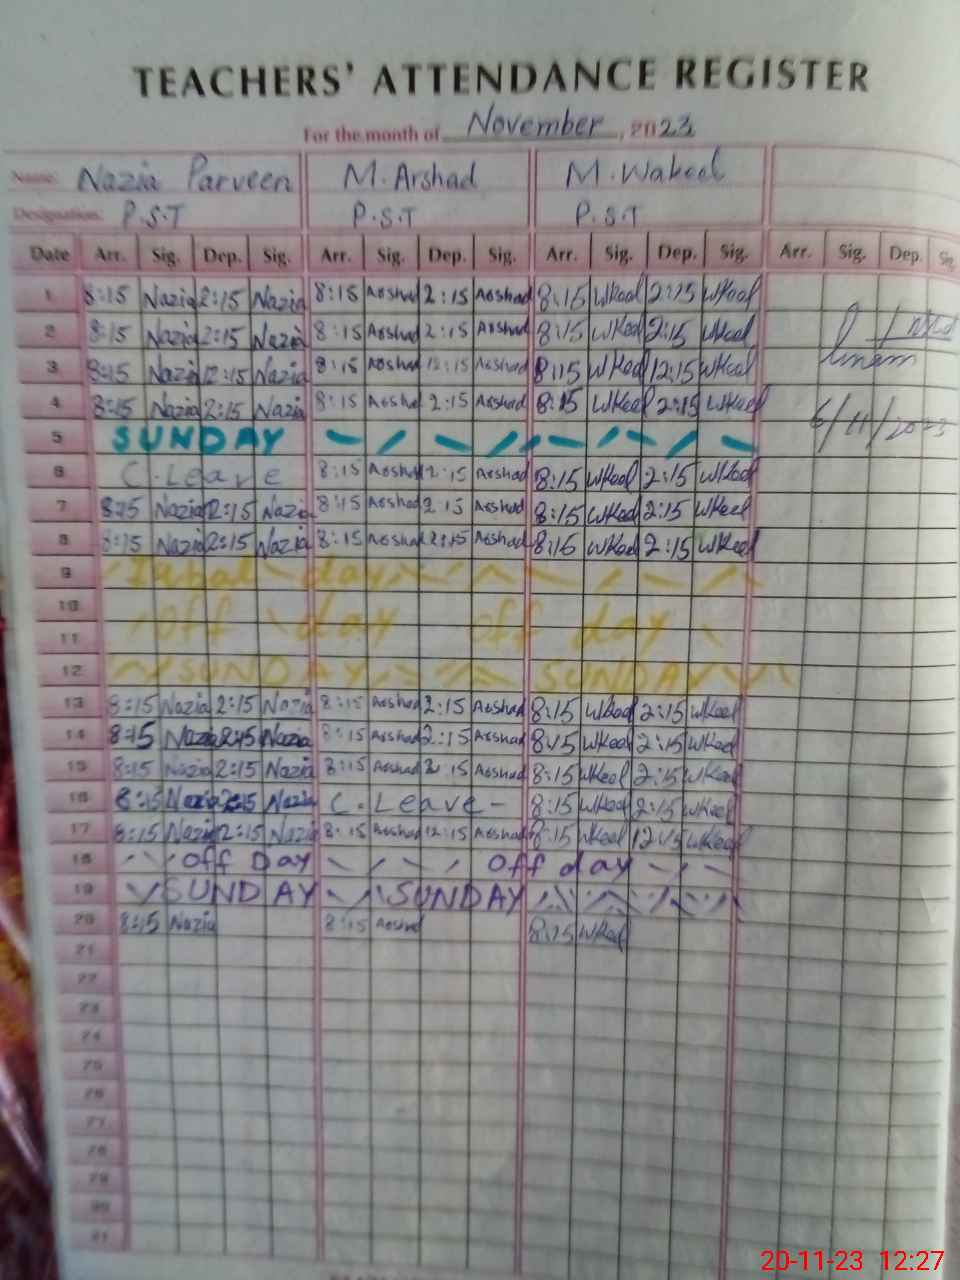 TEACHERS' ATTENDANCE REGISTER
For the month of November, 2023
Name: Nazia Parveen M. Arshad M. Wakeel
Designation: P.S.T P.S.T P.S.T
Date Arr. Sig. Dep. Sig. Arr. Sig. Dep. Sig. Arr. Sig. Dep. Sig. Arr. Sig. Dep. Sig.
1 8:15 Nazia 2:15 Nazia 8:15 Arshad 2:15 Arshad 8:15 WKeel 2:15 WKeel
2 8:15 Nazia 2:15 Nazia 8:15 Arshad 2:15 Arshad 8:15 WKeel 2:15 WKeel
3 8:15 Nazia 12:15 Nazia 8:15 Arshad 12:15 Arshad 8:15 WKeel 12:15 WKeel
4 8:15 Nazia 2:15 Nazia 8:15 Arshad 2:15 Arshad 8:15 WKeel 2:15 WKeel 6/11/2023
5 SUNDAY
6 C. Leave 8:15 Arshad 2:15 Arshad 8:15 WKeel 2:15 WKeel
7 8:15 Nazia 2:15 Nazia 8:15 Arshad 2:15 Arshad 8:15 WKeel 2:15 WKeel
8 8:15 Nazia 2:15 Nazia 8:15 Arshad 2:15 Arshad 8:15 WKeel 2:15 WKeel
9 Iqbal day
10
off day off day
11
12 SUNDAY SUNDAY
13 8:15 Nazia 2:15 Nazia 8:15 Arshad 2:15 Arshad 8:15 WKeel 2:15 WKeel
14 8:15 Nazia 2:15 Nazia 8:15 Arshad 2:15 Arshad 8:15 WKeel 2:15 WKeel
15 8:15 Nazia 2:15 Nazia 8:15 Arshad 2:15 Arshad 8:15 WKeel 2:15 WKeel
16 8:15 Nazia 2:15 Nazia C. Leave - 8:15 WKeel 2:15 WKeel
17 8:15 Nazia 12:15 Nazia 8:15 Arshad 12:15 Arshad 8:15 WKeel 12:15 WKeel
18 Off Day Off day
19 SUNDAY SUNDAY
20 8:15 Nazia 8:15 Arshad 8:15 WKeel
21
22
23
24
25
26
27
28
29
30
31
20-11-23 12:27